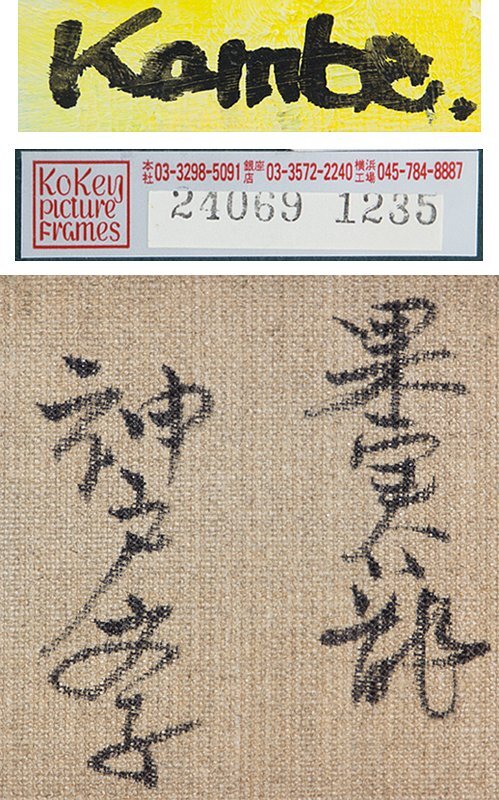 Kambe.
KoKey
picture
Frames
本社 03-3298-5091 銀座店 03-3572-2240 横浜工場 045-784-8887
24069 1235
果実
神戸